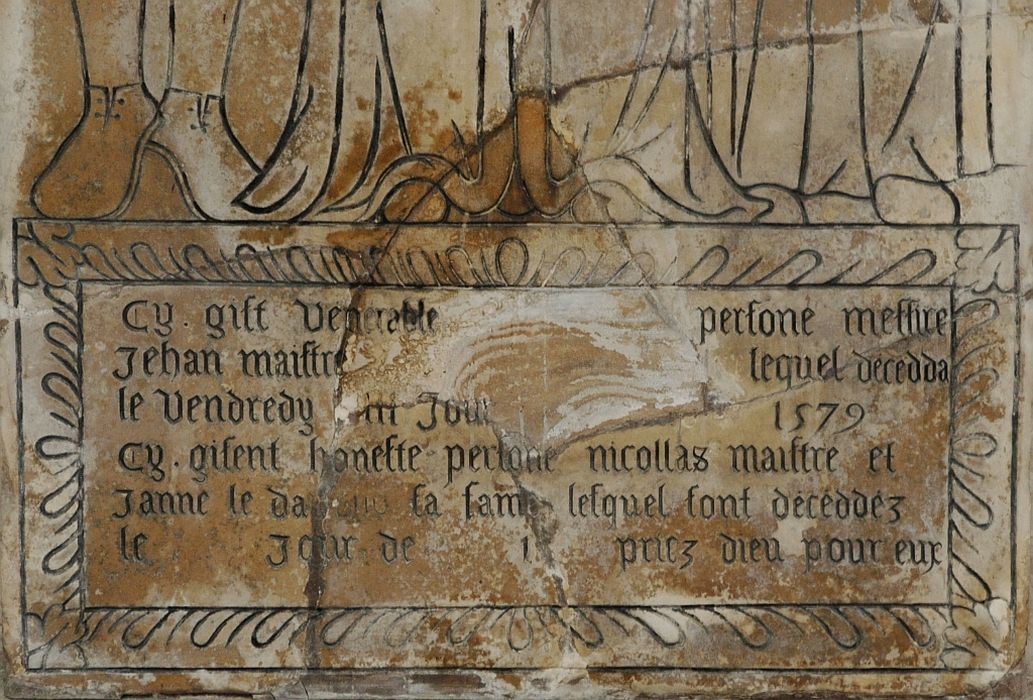 Cy . gist Venerable persone messire
Jehan maistre lequel decedda
le Vendredy Jour 1579
Cy . gisent honeste persone nicollas maistre et
Janne le sa fame lesquel sont décéddéz
le Jour de priez dieu pour eux